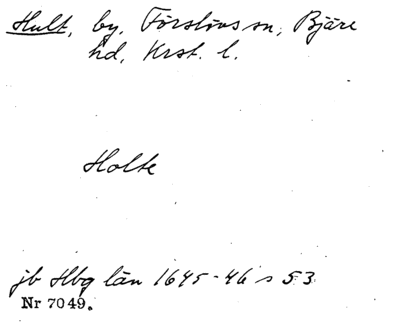 Hult, by, Förslövs sn, Bjäre
hd, Krst. l.
Holte
jb Hbg län 1645-46 s 53
Nr 7049.